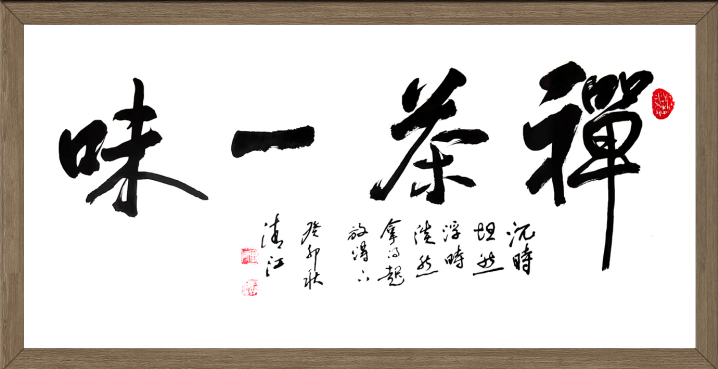 禪茶一味
沉時
坦然
浮時
淡然
拿得起
放得下
癸卯秋
清江